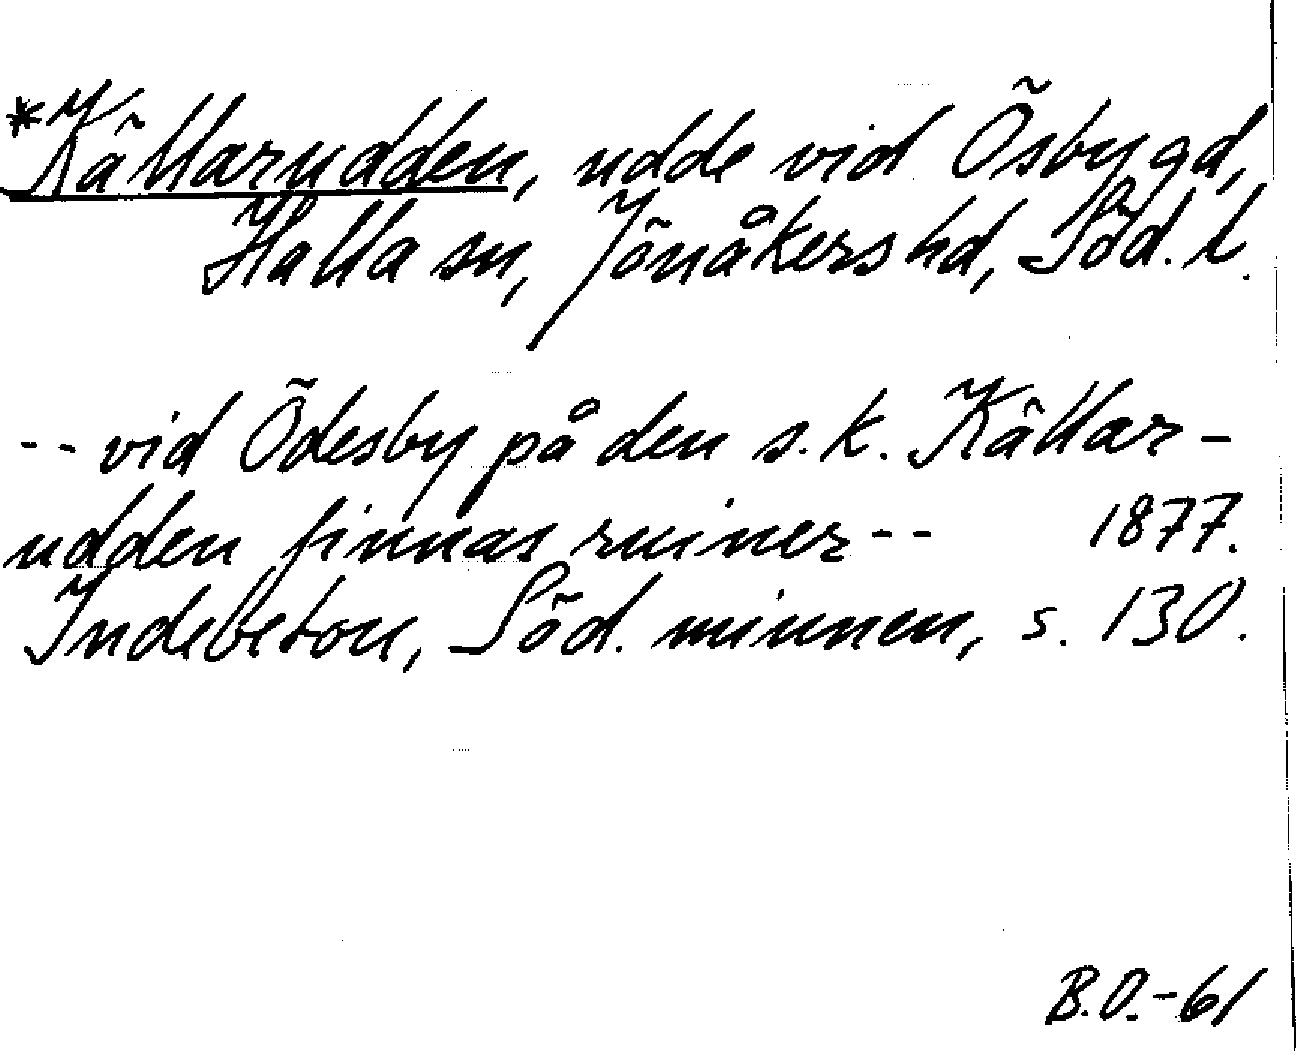 *Källarudden, udde vid Ösbygd,
Halla sn, Jönåkers hd, Söd. l.
-- vid Ödesby på den s.k. Källar-
udden finnas ruiner -- 1877.
Indebetou, Söd. minnen, s. 130.
B.O.-61